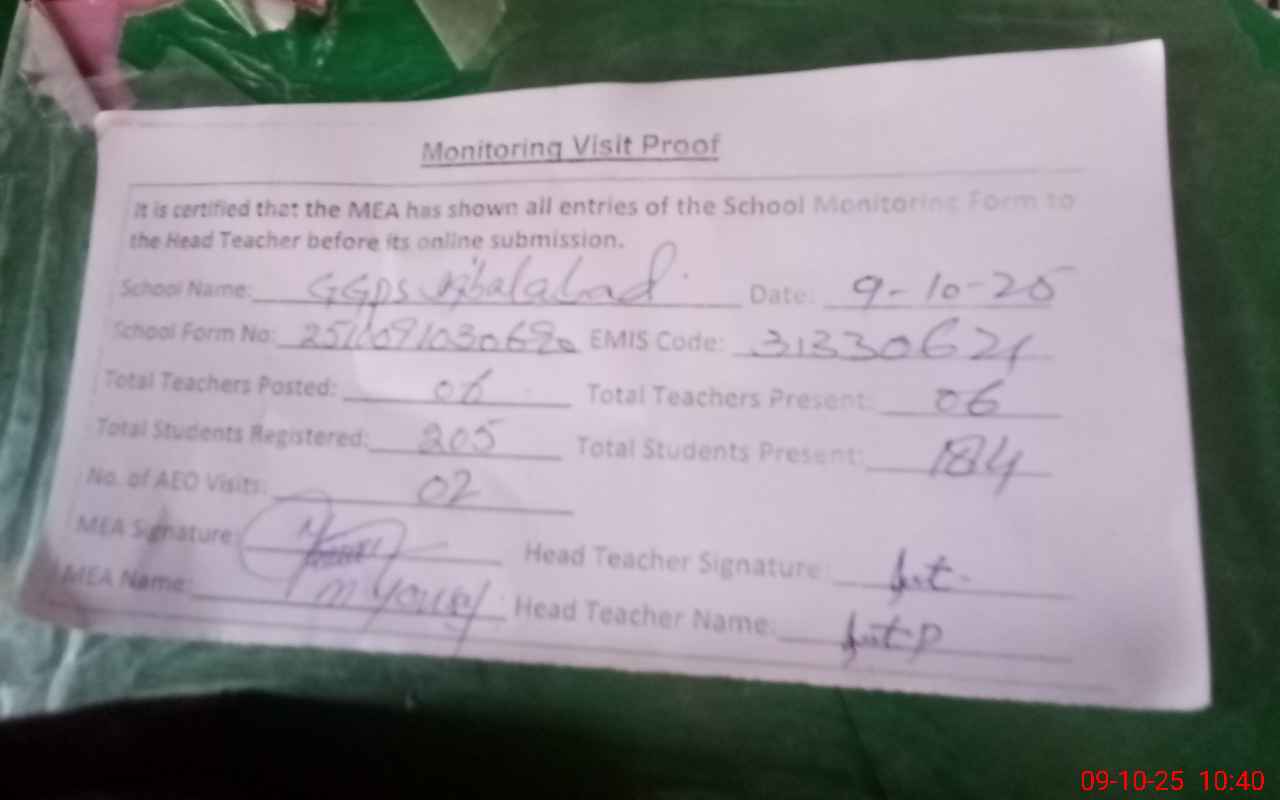 Monitoring Visit Proof
It is certified that the MEA has shown all entries of the School Monitoring Form to
the Head Teacher before its online submission.
School Name: GGPS Iqbalabad Date: 9-10-25
School Form No: EMIS Code: 31330621
Total Teachers Posted: 06 Total Teachers Present: 06
Total Students Registered: 205 Total Students Present: 184
No. of AEO Visits: 02
MEA Signature: Head Teacher Signature:
MEA Name: M Yousaf Head Teacher Name:
09-10-25 10:40